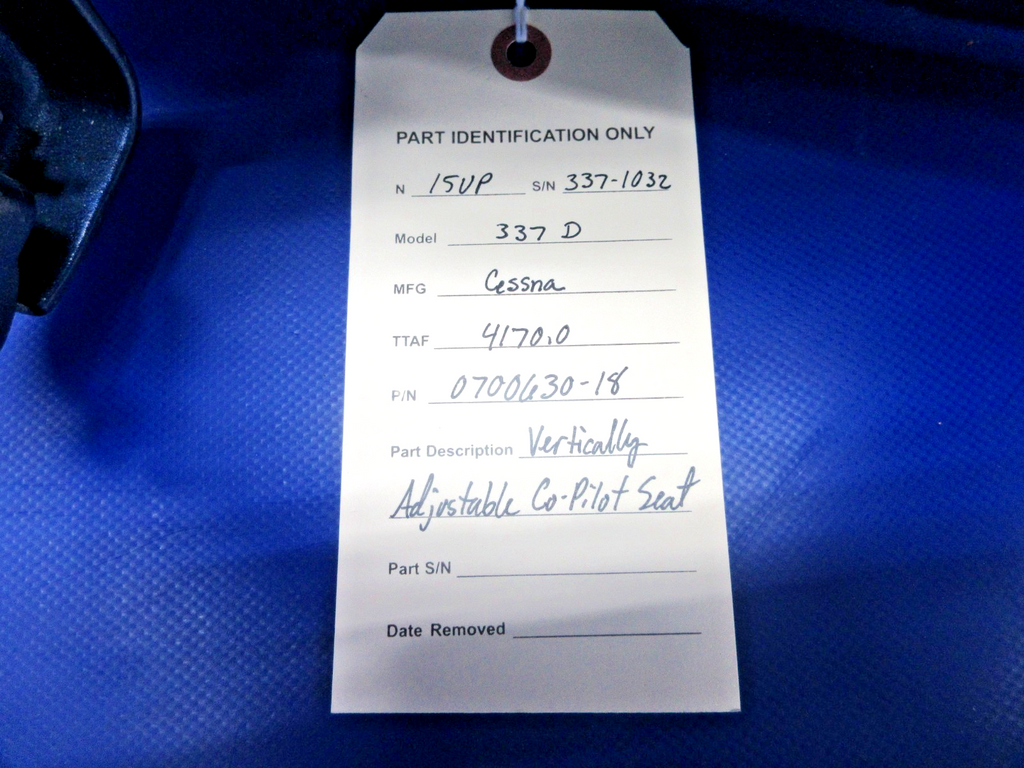 PART IDENTIFICATION ONLY
N 15UP S/N 337-1032
Model 337 D
MFG Cessna
TTAF 4170.0
P/N 0700630-18
Part Description Vertically
Adjustable Co-Pilot Seat
Part S/N
Date Removed